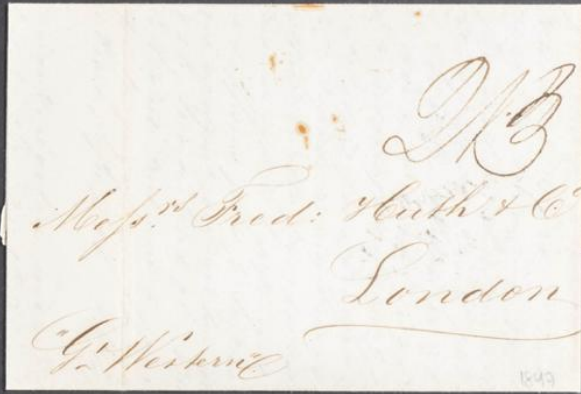 2/3
Mess.rs Fred: Huth & Co
London
"Gt Western"
1842